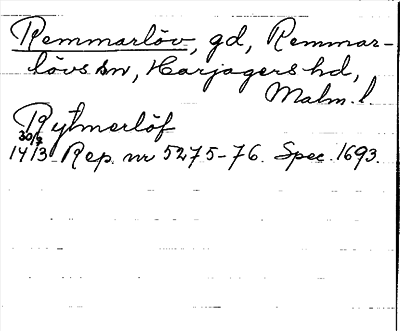 Remmarlöv, gd, Remmar-
lövs sn, Harjagers hd,
Malm. l.
Rytmerlöf
30/7
14 13 Rep. nr 5275-76. Spec. 1693.